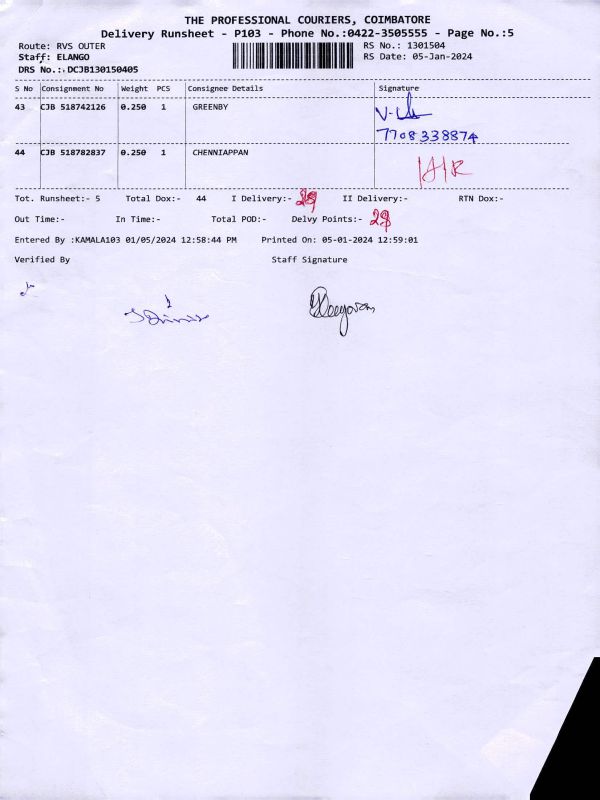 THE PROFESSIONAL COURIERS, COIMBATORE
Delivery Runsheet - P103 - Phone No.:0422-3505555 - Page No.:5
Route: RVS OUTER RS No.: 1301504
Staff: ELANGO RS Date: 05-Jan-2024
DRS No.: DCJB130150405
S No Consignment No Weight PCS Consignee Details Signature
43 CJB 518742126 0.250 1 GREENBY
7708338874
44 CJB 518782837 0.250 1 CHENNIAPPAN
Tot. Runsheet:- 5 Total Dox:- 44 I Delivery:- II Delivery:- RTN Dox:-
Out Time:- In Time:- Total POD:- Delvy Points:-
Entered By :KAMALA103 01/05/2024 12:58:44 PM Printed On: 05-01-2024 12:59:01
Verified By Staff Signature